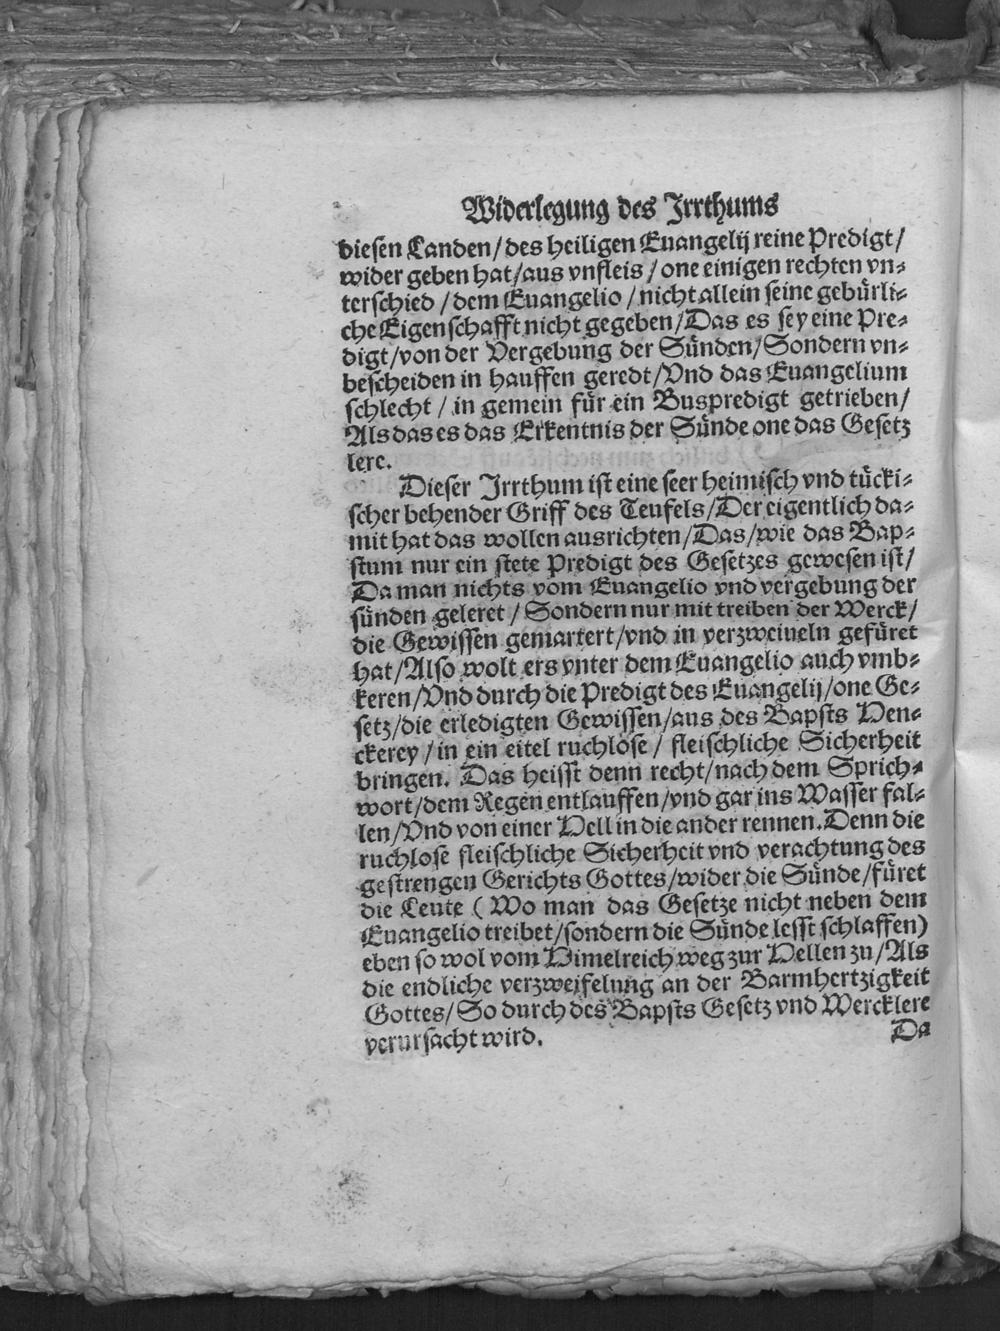 Widerlegung des Jrrthums
diesen Landen/des heiligen Euangelij reine Predigt/
wider geben hat/aus vnfleis/one einigen rechten vn-
terschied/dem Euangelio/nicht allein seine gebürli-
che Eigenschafft nicht gegeben/Das es sey eine Pre-
digt/von der Vergebung der Sünden/Sondern vn-
bescheiden in hauffen geredt/Vnd das Euangelium
schlecht/in gemein für ein Buspredigt getrieben/
Als das es das Erkentnis der Sünde one das Gesetz
lere.
Dieser Jrrthum ist eine seer heimisch vnd tücki-
scher behender Griff des Teufels/Der eigentlich da-
mit hat das wollen ausrichten/Das/wie das Bap-
stum nur ein stete Predigt des Gesetzes gewesen ist/
Da man nichts vom Euangelio vnd vergebung der
sünden geleret/Sondern nur mit treiben der Werck/
die Gewissen gemartert/vnd in verzweiueln gefüret
hat/Also wolt ers vnter dem Euangelio auch vmb-
keren/Vnd durch die Predigt des Euangelij/one Ge-
setz/die erledigten Gewissen/aus des Bapsts Hen-
ckerey/in ein eitel ruchlose/fleischliche Sicherheit
bringen. Das heisst denn recht/nach dem Sprich-
wort/dem Regen entlauffen/vnd gar ins Wasser fal-
len/Vnd von einer Hell in die ander rennen.Denn die
ruchlose fleischliche Sicherheit vnd verachtung des
gestrengen Gerichts Gottes/wider die Sünde/füret
die Leute (Wo man das Gesetze nicht neben dem
Euangelio treibet/sondern die Sünde lesst schlaffen)
eben so wol vom Himelreich weg zur Hellen zu/Als
die endliche verzweifelung an der Barmhertzigkeit
Gottes/So durch des Bapsts Gesetz vnd Wercklere
verursacht wird.
Da